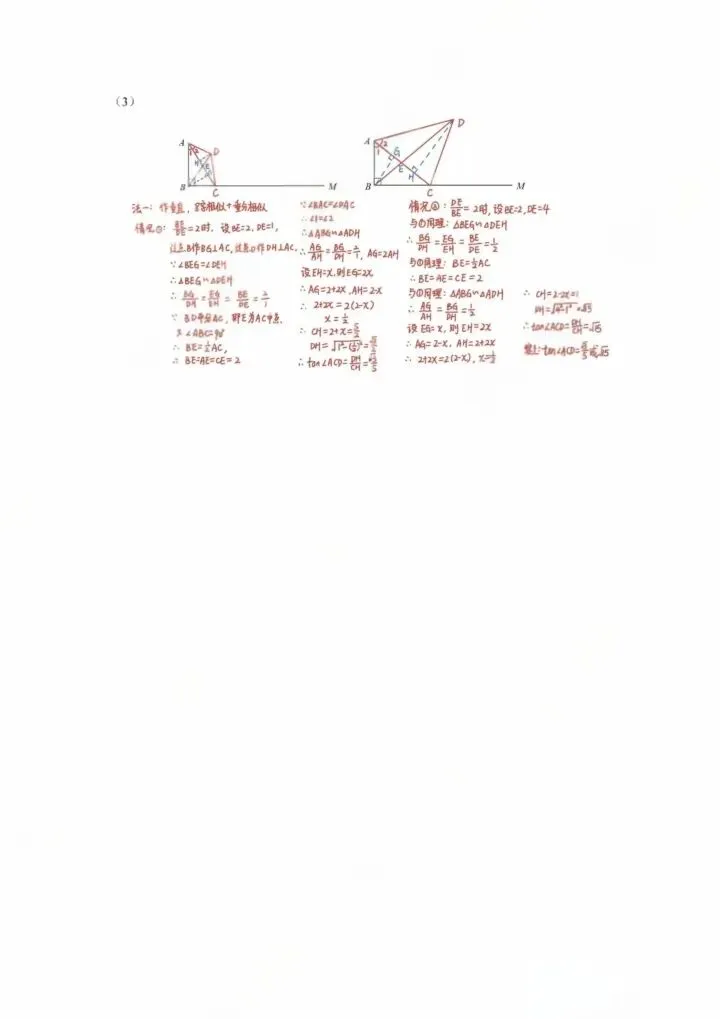 （3）
A
1
2
D
H
E
G
B
C
M
A
1
2
G
E
H
D
B
C
M
法一：作垂直，8字相似+垂分相似
情况①：BE/DE=2时，设BE=2，DE=1，
过点B作BG⊥AC，过点D作DH⊥AC，
∵∠BEG=∠DEH
∴△BEG∽△DEH
∴ BG/DH = EG/EH = BE/DE = 2/1
∵ BD平分AC，即E为AC中点，
又∠ABC=90°
∴ BE=½AC，
∴ BE=AE=CE=2
∵∠BAC=∠DAC
∴∠1=∠2
∴△ABG∽△ADH
∴ AG/AH = BG/DH = 2/1，AG=2AH
设EH=x，则EG=2x
∴AG=2+2x，AH=2-x
∴ 2+2x=2(2-x)
x=½
∴ CH=2+x=5/2
DH=√(1²-(½)²)=√3/2
∴tan∠ACD=DH/CH=√3/5
情况②：DE/BE=2时，设BE=2，DE=4
与①同理：△BEG∽△DEH
∴ BG/DH = EG/EH = BE/DE = 1/2
与①同理：BE=½AC
∴BE=AE=CE=2
与①同理：△ABG∽△ADH
∴ AG/AH = BG/DH = 1/2
设EG=x，则EH=2x
∴AG=2-x，AH=2+2x
∴ 2+2x=2(2-x)，x=½
∴ CH=2-2x=1
DH=√(4²-1²)=√15
∴tan∠ACD=DH/CH=√15
综上：tan∠ACD=√3/5或√15